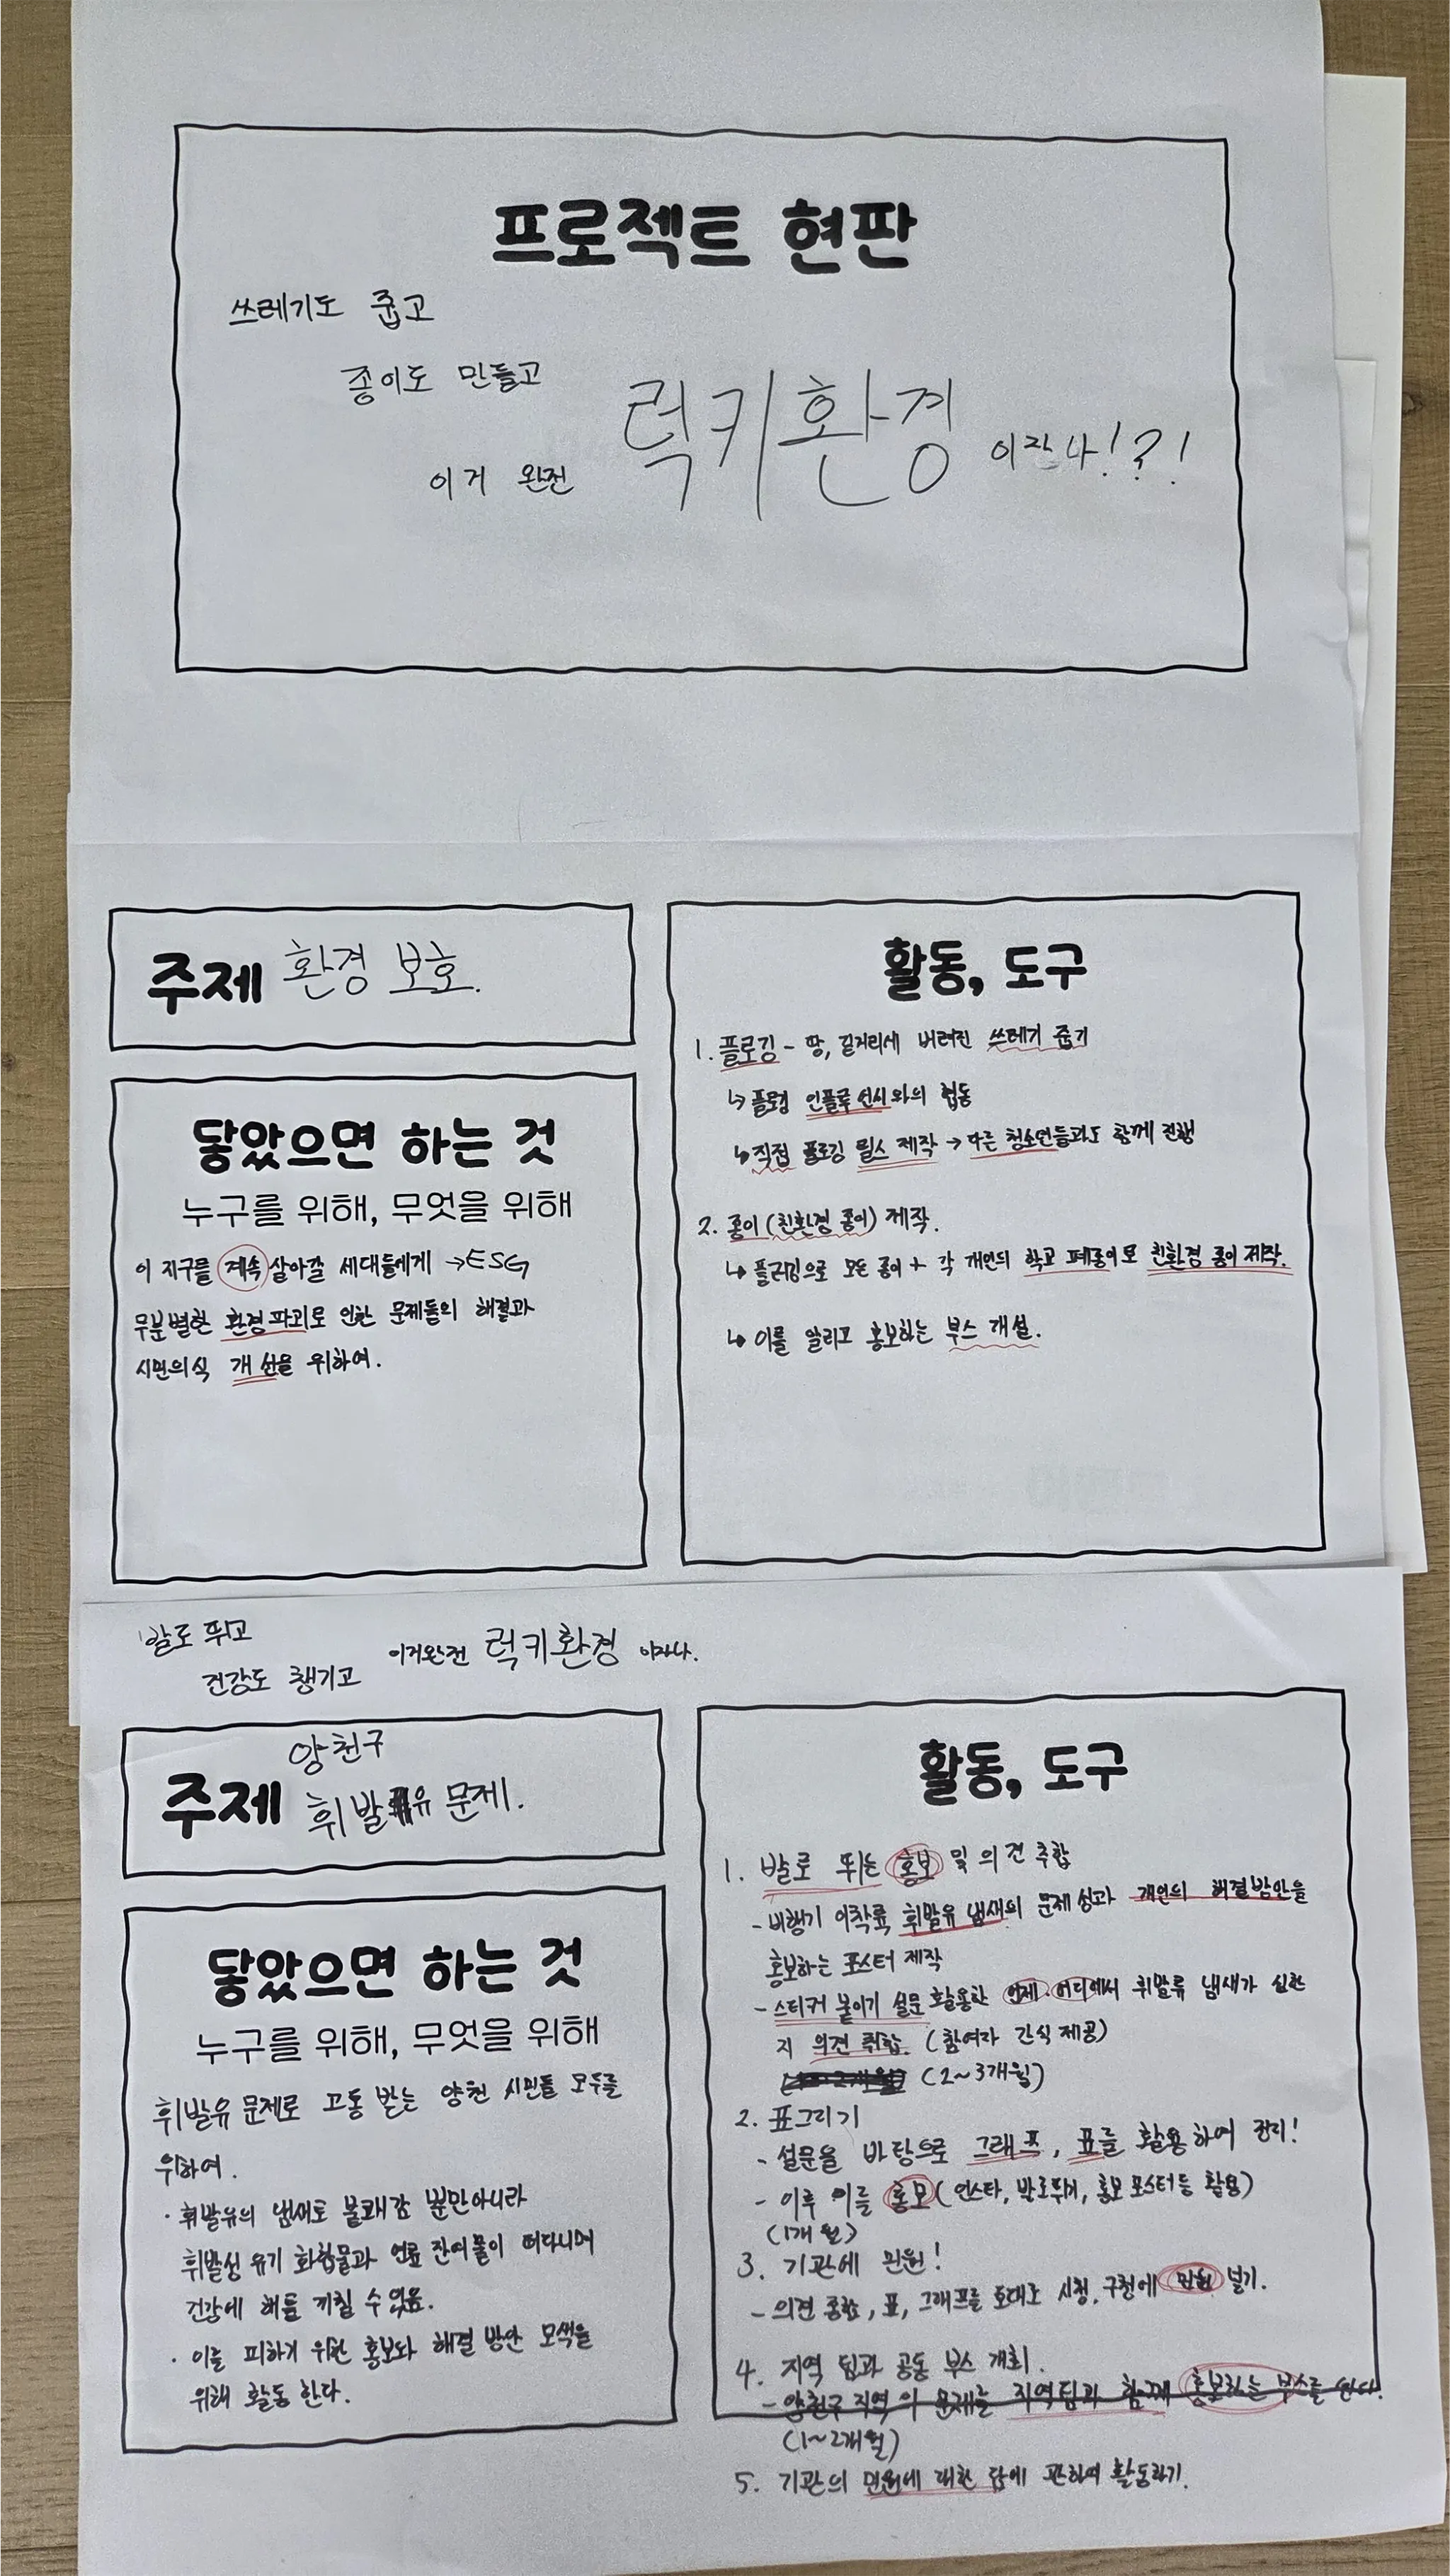 프로젝트 현판
쓰레기도 줍고
종이도 만들고
이거 완전 럭키환경 이잖나!?!
주제 환경 보호.
닿았으면 하는 것
누구를 위해, 무엇을 위해
이 지구를 계속 살아갈 세대들에게 →ESG
무분별한 환경파괴로 인한 문제들의 해결과
시민의식 개선을 위하여.
활동, 도구
1. 플로깅 - 땅, 길거리에 버려진 쓰레기 줍기
↳ 플로깅 인플루언서와의 협동
↳ 직접 플로깅 릴스 제작 → 다른 청소년들과도 함께 진행
2. 종이(친환경 종이) 제작.
↳ 플로깅으로 모든 종이 + 각 개인의 학교 폐종이로 친환경 종이 제작.
↳ 이를 알리고 홍보하는 부스 개설.
발로 뛰고
건강도 챙기고
이거완전 럭키환경 이자나.
주제 양천구
휘발유 문제.
닿았으면 하는 것
누구를 위해, 무엇을 위해
휘발유 문제로 고통 받는 양천 시민들 모두를
위하여.
· 휘발유의 냄새도 불쾌감 뿐만아니라
휘발성 유기 화합물과 연료 잔여물이 떠다니며
건강에 해를 끼칠 수 있음.
· 이를 피하기 위한 홍보와 해결 방안 모색을
위해 활동 한다.
활동, 도구
1. 발로 뛰는 홍보 및 의견 추합
- 비행기 이착륙 휘발유 냄새의 문제성과 개인의 해결방안을
홍보하는 포스터 제작
- 스티커 붙이기 설문 활용한 언제, 어디에서 휘발류 냄새가 심한
지 의견 취합. (참여자 간식 제공)
(2~3개월)
2. 표그리기
- 설문을 바탕으로 그래프, 표를 활용하여 정리!
- 이후 이를 홍보(인스타, 발로뛰기, 홍보 포스터 등 활용)
(1개월)
3. 기관에 민원!
- 의견 종합, 표, 그래프를 토대로 시청, 구청에 민원 넣기.
4. 지역 팀과 공동 부스 개최.
- 양천구 지역의 문제를 지역팀과 함께 홍보하는 부스를 한다.
(1~2개월)
5. 기관의 민원에 대한 답에 관하여 활동하기.